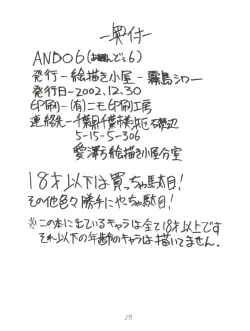 ―奥付―
AND06(あんど。6)
発行―絵描き小屋―霧島シロー
発行日―2002.12.30
印刷―(有)ニモ印刷工房
連絡先―千葉県千葉市
5-15-5-306
愛澤方絵描き小屋分室
18才以下は買っちゃ駄目!
その他色々勝手にやっちゃ駄目!
※この本に出ているキャラは全て18才以上です
それ以下の年齢のキャラは描いてません.